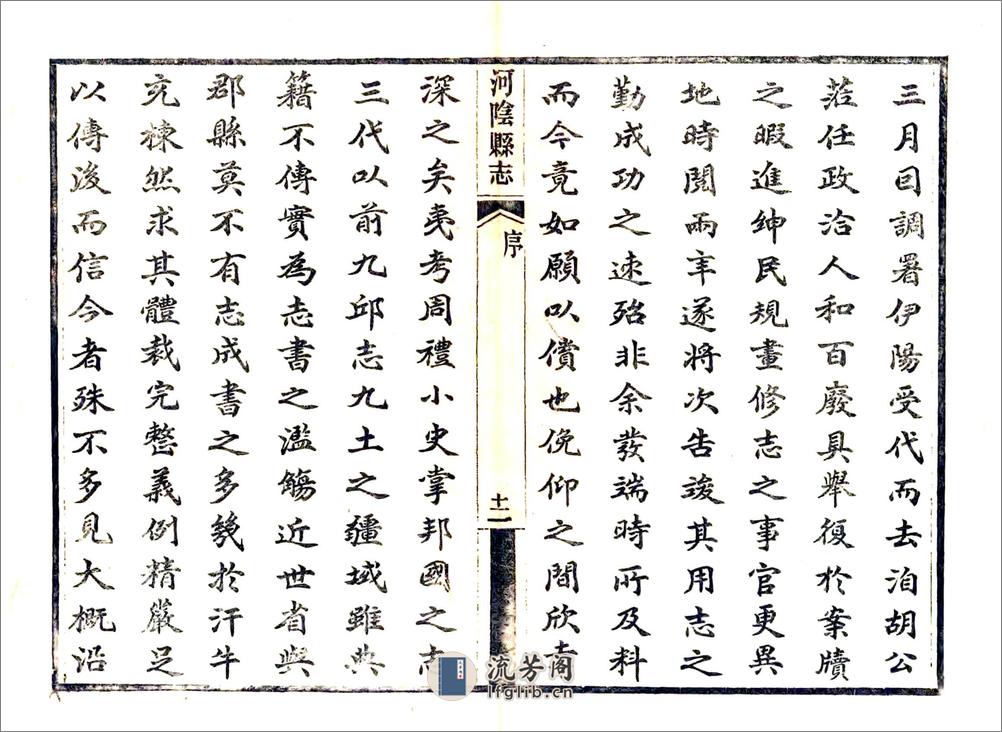 三月囙調署伊陽受代而去洎胡公
蒞任政洽人和百廢具舉復於案牘
之暇進紳民規畫修志之事官更異
地時閱兩年遂將次告竣其用志之
勤成功之速殆非余發端時所及料
而今竟如願以償也俛仰之間欣幸
河陰縣志
序
十二
深之矣夷考周禮小史掌邦國之志
三代以前九邱志九土之疆域雖典
籍不傳實為志書之濫觴近世省與
郡縣莫不有志成書之多幾於汗牛
充棟然求其體裁完整義例精嚴足
以傳後而信今者殊不多見大概沿
流芳阁
lfglib.cn